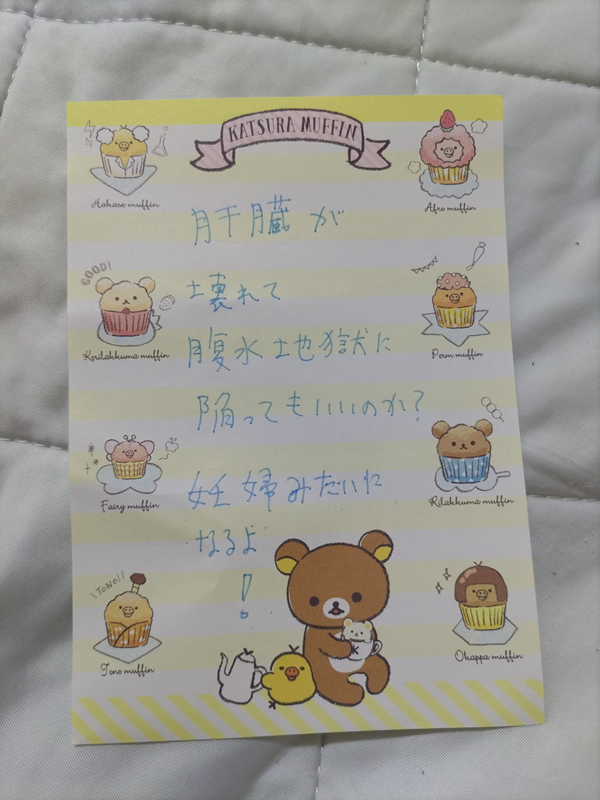 KATSURA MUFFIN
Hakase muffin
Afro muffin
肝臓が
GOOD!
壊れて
Korilakkuma muffin
腹水地獄に
Perm muffin
陥ってもいいのか?
妊婦みたいに
Fairy muffin
Rilakkuma muffin
なるよ
!
TONO!!
Tono muffin
Okappa muffin